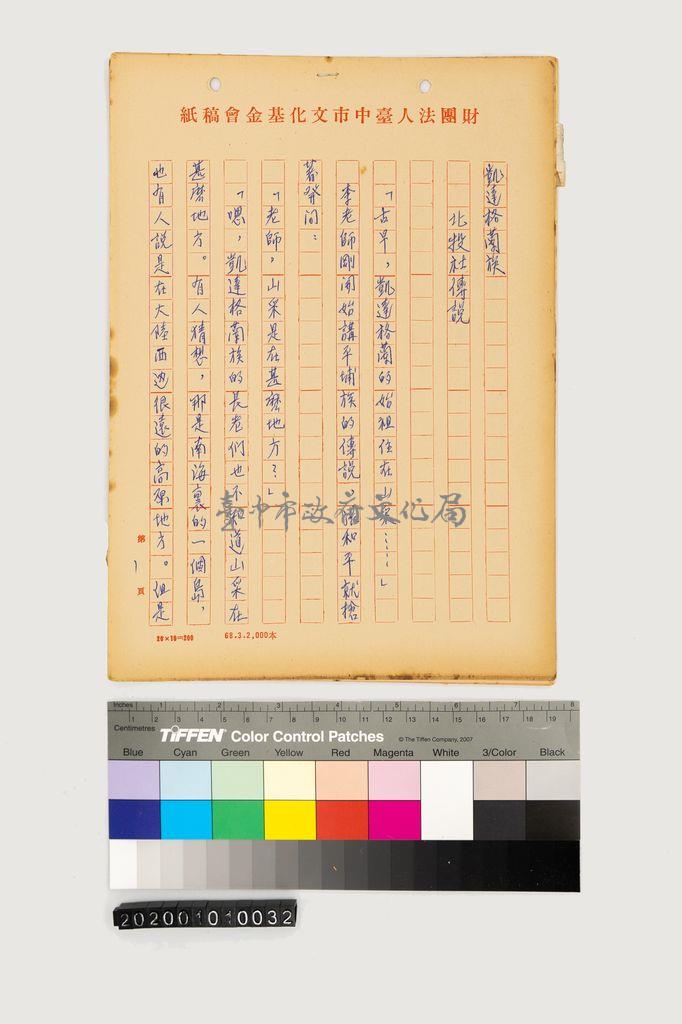 財團法人臺中市文化基金會稿紙
凱達格蘭族
北投社傳說
「古早，凱達格蘭的始祖住在山采……」
李老師剛開始講平埔族的傳說，和平就搶
著發問：
「老師，山采是在甚麼地方？」
「嗯，凱達格蘭族的長老們也不知道山采在
甚麼地方。有人猜想，那是南海裏的一個島，
也有人說是在大陸西边很遠的高原地方。但是
第1頁
20×10=200
68.3.2,000本
臺中市政府文化局
Inches 1 2 3 4 5 6 7 8
Centimetres 1 2 3 4 5 6 7 8 9 10 11 12 13 14 15 16 17 18 19
TIFFEN Color Control Patches © The Tiffen Company, 2007
Blue Cyan Green Yellow Red Magenta White 3/Color Black
202001010032